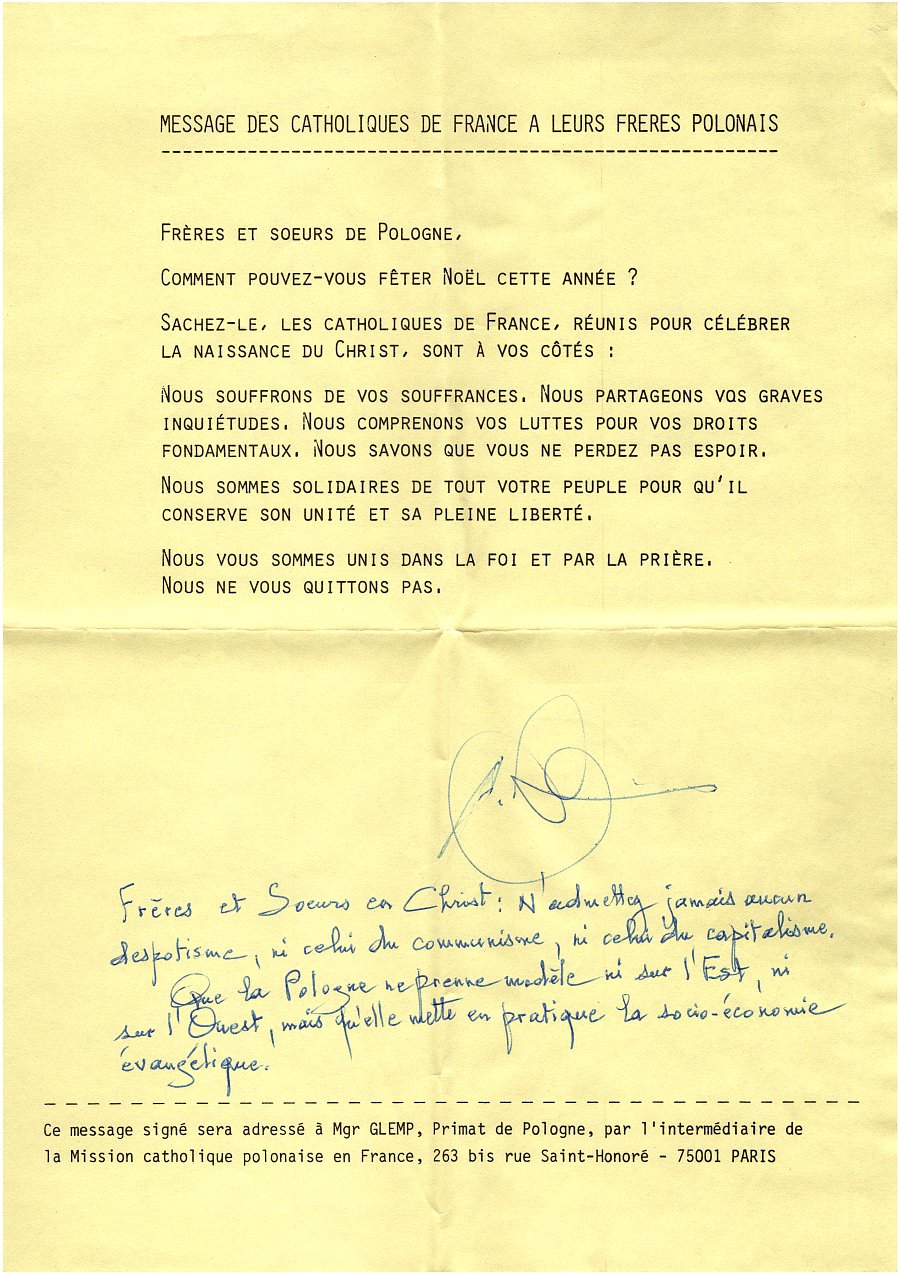 MESSAGE DES CATHOLIQUES DE FRANCE A LEURS FRERES POLONAIS
FRÈRES ET SOEURS DE POLOGNE,
COMMENT POUVEZ-VOUS FÊTER NOËL CETTE ANNÉE ?
SACHEZ-LE, LES CATHOLIQUES DE FRANCE, RÉUNIS POUR CÉLÉBRER
LA NAISSANCE DU CHRIST, SONT À VOS CÔTÉS :
NOUS SOUFFRONS DE VOS SOUFFRANCES. NOUS PARTAGEONS VOS GRAVES
INQUIÉTUDES. NOUS COMPRENONS VOS LUTTES POUR VOS DROITS
FONDAMENTAUX. NOUS SAVONS QUE VOUS NE PERDEZ PAS ESPOIR.
NOUS SOMMES SOLIDAIRES DE TOUT VOTRE PEUPLE POUR QU'IL
CONSERVE SON UNITÉ ET SA PLEINE LIBERTÉ.
NOUS VOUS SOMMES UNIS DANS LA FOI ET PAR LA PRIÈRE.
NOUS NE VOUS QUITTONS PAS.
Frères et Soeurs en Christ : N'admettez jamais aucun
despotisme, ni celui du communisme, ni celui du capitalisme.
Que la Pologne ne prenne modèle ni sur l'Est, ni
sur l'Ouest, mais qu'elle mette en pratique la socio-économie
évangélique.
Ce message signé sera adressé à Mgr GLEMP, Primat de Pologne, par l'intermédiaire de
la Mission catholique polonaise en France, 263 bis rue Saint-Honoré - 75001 PARIS